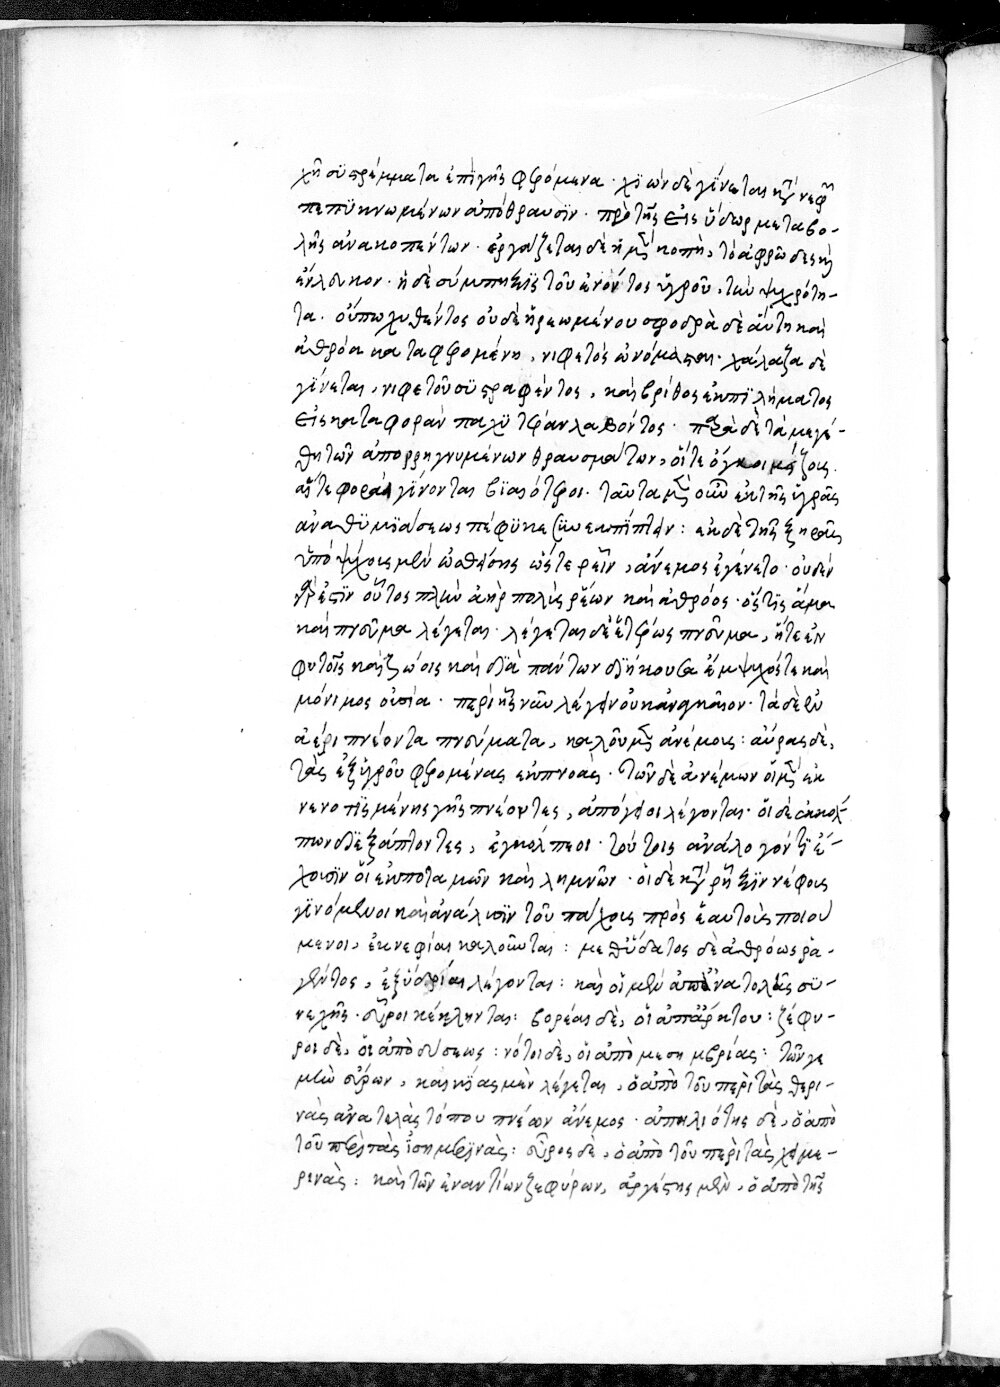 χῆ συστρέμματα ἐπὶ γῆς φερόμενα· χιὼν δὲ γίνεται κατὰ νεφῶν
πεπυκνωμένων ἀπόθραυσιν· πρὸ τῆς εἰς ὕδωρ μεταβο-
λῆς ἀνακοπέντων· ἐργάζεται δὲ ἡ μὲν κοπὴ, τὸ ἀφρῶδες καὶ
ἔκλευκον· ἡ δὲ σύμπηξις τοῦ ἐνόντος ὑγροῦ, τὴν ψυχρότη-
τα· οὔπω χυθέντος οὐδὲ ἠραιωμένου σφοδρὰ δὲ αὕτη καὶ
ἀθρόα καταφερομένη, νιφετὸς ὠνόμασται· χάλαζα δὲ
γίνεται, νιφετοῦ συστραφέντος, καὶ βρῖθος ἐκ πιλήματος
εἰς καταφορὰν παχυτέραν λαβόντος· παρὰ δὲ τὰ μεγέ-
θη τῶν ἀπορρηγνυμένων θραυσμάτων, οἵ τε ὄγκοι μείζους
αἵ τε φοραὶ γίνονται βιαιότεροι· ταῦτα μὲν οὖν ἐκ τῆς ὑγρᾶς
ἀναθυμιάσεως πέφυκε συνεκπίπτειν: ἐκ δὲ τῆς ξηρᾶς
ὑπὸ ψύχους μὲν ὠσθείσης ὥστε ῥεῖν, ἄνεμος ἐγένετο· οὐδὲν
γάρ ἐστιν οὗτος πλὴν ἀὴρ πολὺς ῥέων καὶ ἀθρόος· ὅστις ἅμα
καὶ πνεῦμα λέγεται· λέγεται δὲ ἑτέρως πνεῦμα, ἥ τε ἐν
φυτοῖς καὶ ζώοις καὶ διὰ πάντων διήκουσα ἔμψυχός τε καὶ
μόνιμος οὐσία· περὶ ἧς νῦν λέγειν οὐκ ἀναγκαῖον· τὰ δὲ ἐν
ἀέρι πνέοντα πνεύματα, καλοῦμεν ἀνέμους: αὔρας δὲ,
τὰς ἐξ ὑγροῦ φερομένας ἐκπνοάς· τῶν δὲ ἀνέμων οἱ μὲν ἐκ
νενοτισμένης γῆς πνέοντες, ἀπόγειοι λέγονται· οἱ δὲ ἐκ κόλ-
πων διεξάπτοντες, ἐγκόλπειοι· τούτοις ἀνάλογόν τι ἔ-
χουσιν οἱ ἐκ ποταμῶν καὶ λιμνῶν· οἱ δὲ κατὰ ῥῆξιν νέφους
γινόμενοι καὶ ἀνάλυσιν τοῦ πάχους πρὸς ἑαυτοὺς ποιού
μενοι, ἐκνεφίαι καλοῦνται: μεθ' ὕδατος δὲ ἀθρόως ῥα-
γέντος, ἐξυδρίαι λέγονται: καὶ οἱ μὲν ἀπὸ ἀνατολῆς συ-
νεχῆς· εὖροι κέκληνται: βορέαι δὲ, οἱ ἀπὸ ἄρκτου: ζέφυ-
ροι δὲ, οἱ ἀπὸ δύσεως: νότοι δὲ, οἱ ἀπὸ μεσημβρίας: τῶν γε
μὴν εὔρων, καικίας μὲν λέγεται, ὁ ἀπὸ τοῦ περὶ τὰς θερι-
νὰς ἀνατολὰς τόπου πνέων ἄνεμος· ἀπηλιότης δὲ, ὁ ἀπὸ
τοῦ περὶ τὰς ἰσημερινάς: εὖρος δὲ, ὁ ἀπὸ τοῦ περὶ τὰς χειμε-
ρινάς: καὶ τῶν ἐναντίων ζεφύρων, ἀργέστης μὲν, ὁ ἀπὸ τῆς